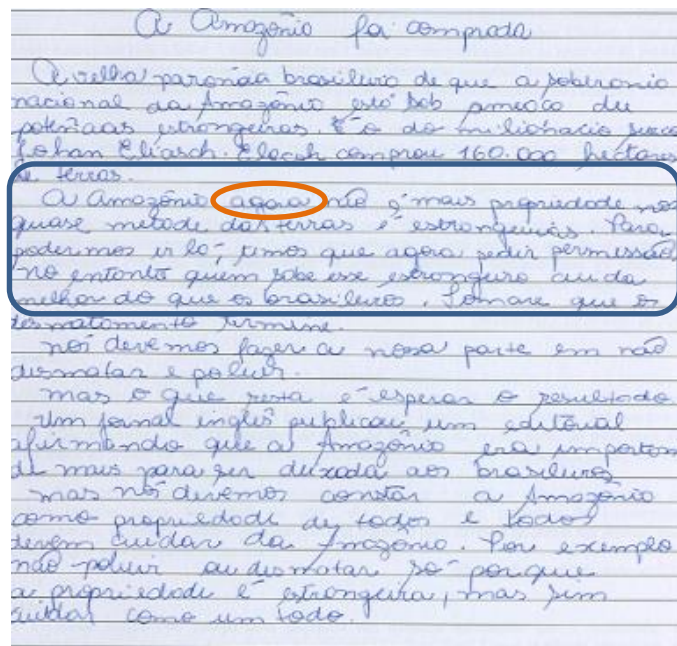 A Amazônia foi comprada
A velha paranóia brasileira de que a soberania
nacional da Amazônia está sob ameaça de
potências estrangeiras. É o do milionário sueco
Johan Eliasch. Eliasch comprou 160.000 hectares
de terras.
A Amazônia agora não é mais propriedade nos
quase metade das terras é estrangeiras. Para
podermos ir lá, temos que agora pedir permissão,
no entanto quem sabe esse estrangeiro cuida
melhor do que os brasileiros. Tomare que os
desmatamento termine.
nós devemos fazer a nossa parte em não
desmatar e poluir.
mas o que resta é esperar o resultado
Um jornal inglês publicou um editorial
afirmando que a Amazônia era importan
de mais para ser deixada aos brasileiros
mas nós devemos constar a Amazônia
como propriedade de todos e todos
devem cuidar da Amazônia. Por exemplo
não poluir ou desmatar só porque
a propriedade é estrangeira, mas sim
cuidar como um todo.